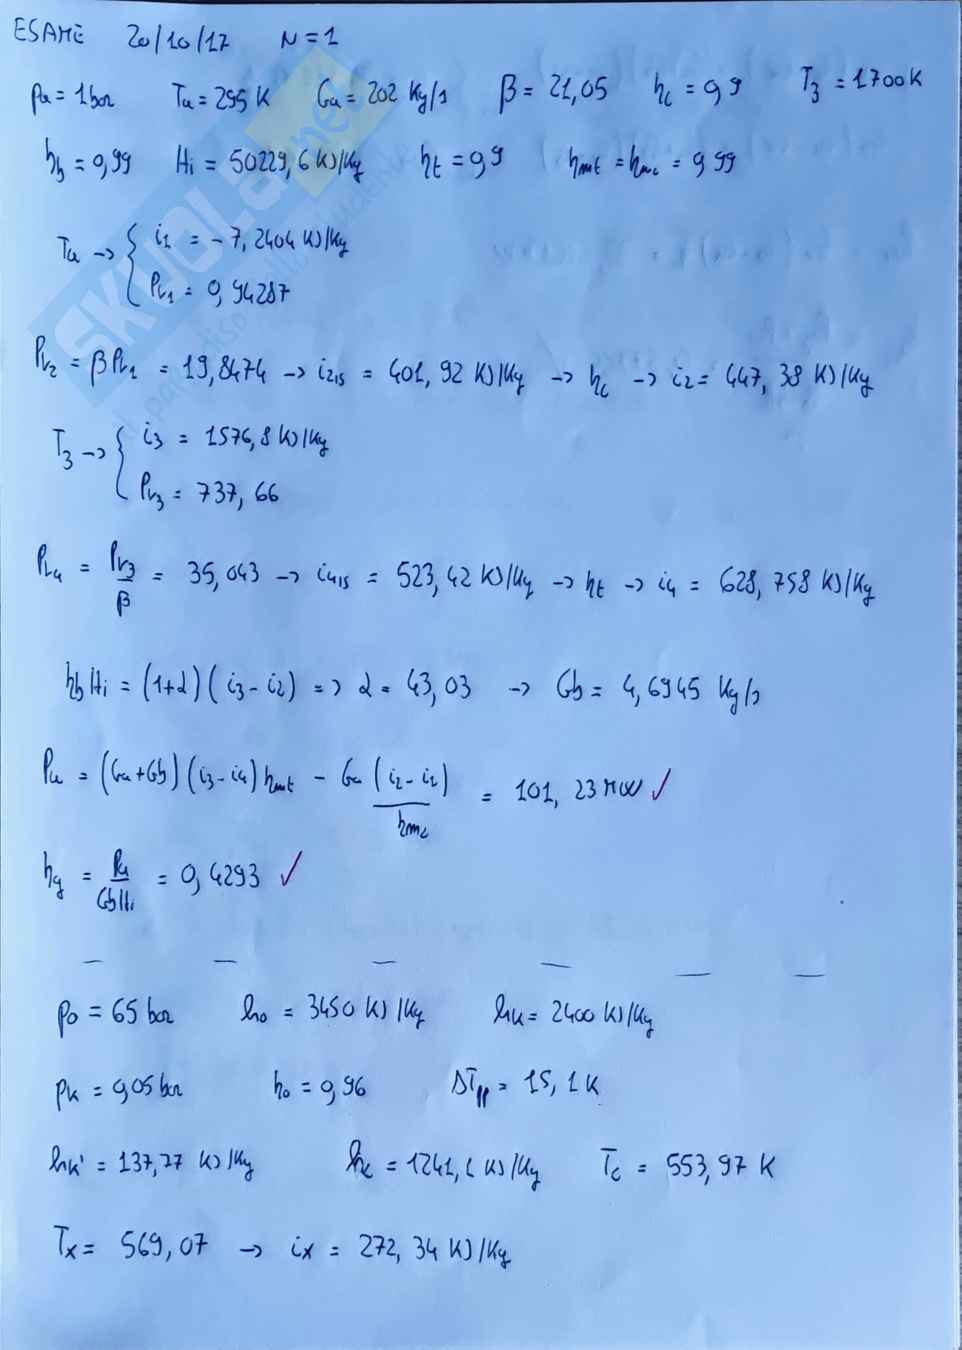 ESAME 20/10/17 N=1
pa = 1 bar Ta = 295 K Ga = 202 Kg/s β = 21,05 ηc = 0,9 T3 = 1700 K
ηb = 0,99 Hi = 50229,6 KJ/Kg ηt = 0,9 ηmt = ηmc = 0,99
Ta → { i1 = -7,2404 KJ/Kg
Pr1 = 0,94287
Pr2 = β Pr1 = 19,8474 → i2is = 401,92 KJ/Kg → ηc → i2 = 447,38 KJ/Kg
T3 → { i3 = 1576,8 KJ/Kg
Pr3 = 737,66
Pr4 = Pr3/β = 35,043 → i4is = 523,42 KJ/Kg → ηt → i4 = 628,758 KJ/Kg
ηb Hi = (1+α)(i3-i2) => α = 43,03 → Gb = 4,6945 Kg/s
Pu = (Ga+Gb)(i3-i4)ηmt - Ga (i2-i1)/ηmc = 101,23 MW ✓
ηg = Pu/GbHi = 0,4293 ✓
— — — — — —
po = 65 bar ho = 3450 KJ/Kg hk = 2400 KJ/Kg
pk = 0,05 bar ηo = 0,96 ΔTpp = 15,1 K
hk' = 137,77 KJ/Kg Tc = 553,97 K
Tx = 569,07 → ix = 272,34 KJ/Kg
SKUOLA.net
il paradiso dello studente